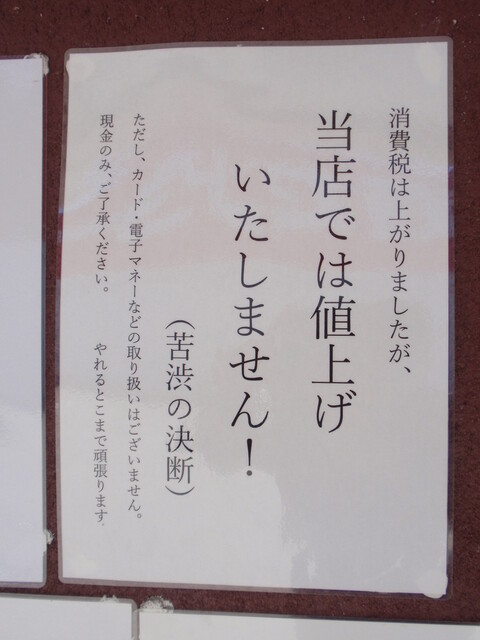 消費税は上がりましたが、
当店では値上げ
いたしません！
（苦渋の決断）
ただし、カード・電子マネーなどの取り扱いはございません。
現金のみ、ご了承ください。
やれるとこまで頑張ります.